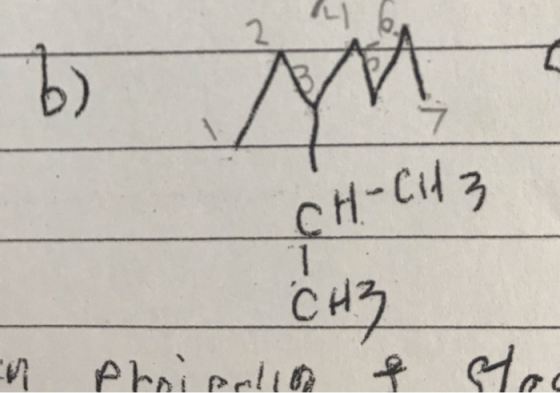 2 4 6
b) 3 5
1 7
CH-CH3
CH3